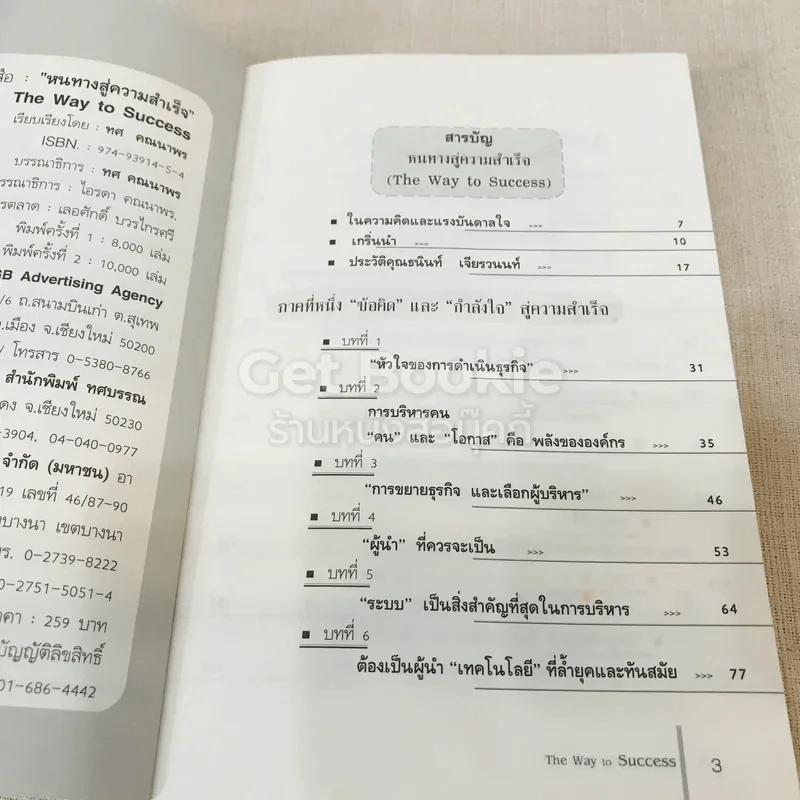 สือ : "หนทางสู่ความสำเร็จ"
The Way to Success
เรียบเรียงโดย : ทศ คณนาพร
ISBN. : 974-93914-5-4
บรรณาธิการ : ทศ คณนาพร
รรณาธิการ : ไอรดา คณนาพร.
รตลาด : เลอศักดิ์ บวรไกรศรี
พิมพ์ครั้งที่ 1 : 8,000 เล่ม
พิมพ์ครั้งที่ 2 : 10,000 เล่ม
GB Advertising Agency
/6 ถ.สนามบินเก่า ต.สุเทพ
อ.เมือง จ.เชียงใหม่ 50200
/ โทรสาร 0-5380-8766
สำนักพิมพ์ ทศบรรณ
แดง จ.เชียงใหม่ 50230
-3904, 04-040-0977
จำกัด (มหาชน) อา
19 เลขที่ 46/87-90
บางนา เขตบางนา
ทร. 0-2739-8222
0-2751-5051-4
าคา : 259 บาท
บัญญัติลิขสิทธิ์
01-686-4442
สารบัญ
หนทางสู่ความสำเร็จ
(The Way to Success)
■ ในความคิดและแรงบันดาลใจ >>> 7
■ เกริ่นนำ >>> 10
■ ประวัติคุณธนินท์ เจียรวนนท์ >>> 17
ภาคที่หนึ่ง "ข้อคิด" และ "กำลังใจ" สู่ความสำเร็จ
■ บทที่ 1
"หัวใจของการดำเนินธุรกิจ" >>> 31
Get Bookie
■ บทที่ 2
การบริหารคน
ร้านหนังสือบุ๊คกี้
"คน" และ "โอกาส" คือ พลังขององค์กร >>> 35
■ บทที่ 3
"การขยายธุรกิจ และเลือกผู้บริหาร" >>> 46
■ บทที่ 4
"ผู้นำ" ที่ควรจะเป็น >>> 53
■ บทที่ 5
"ระบบ" เป็นสิ่งสำคัญที่สุดในการบริหาร >>> 64
■ บทที่ 6
ต้องเป็นผู้นำ "เทคโนโลยี" ที่ล้ำยุคและทันสมัย >>> 77
The Way to Success 3